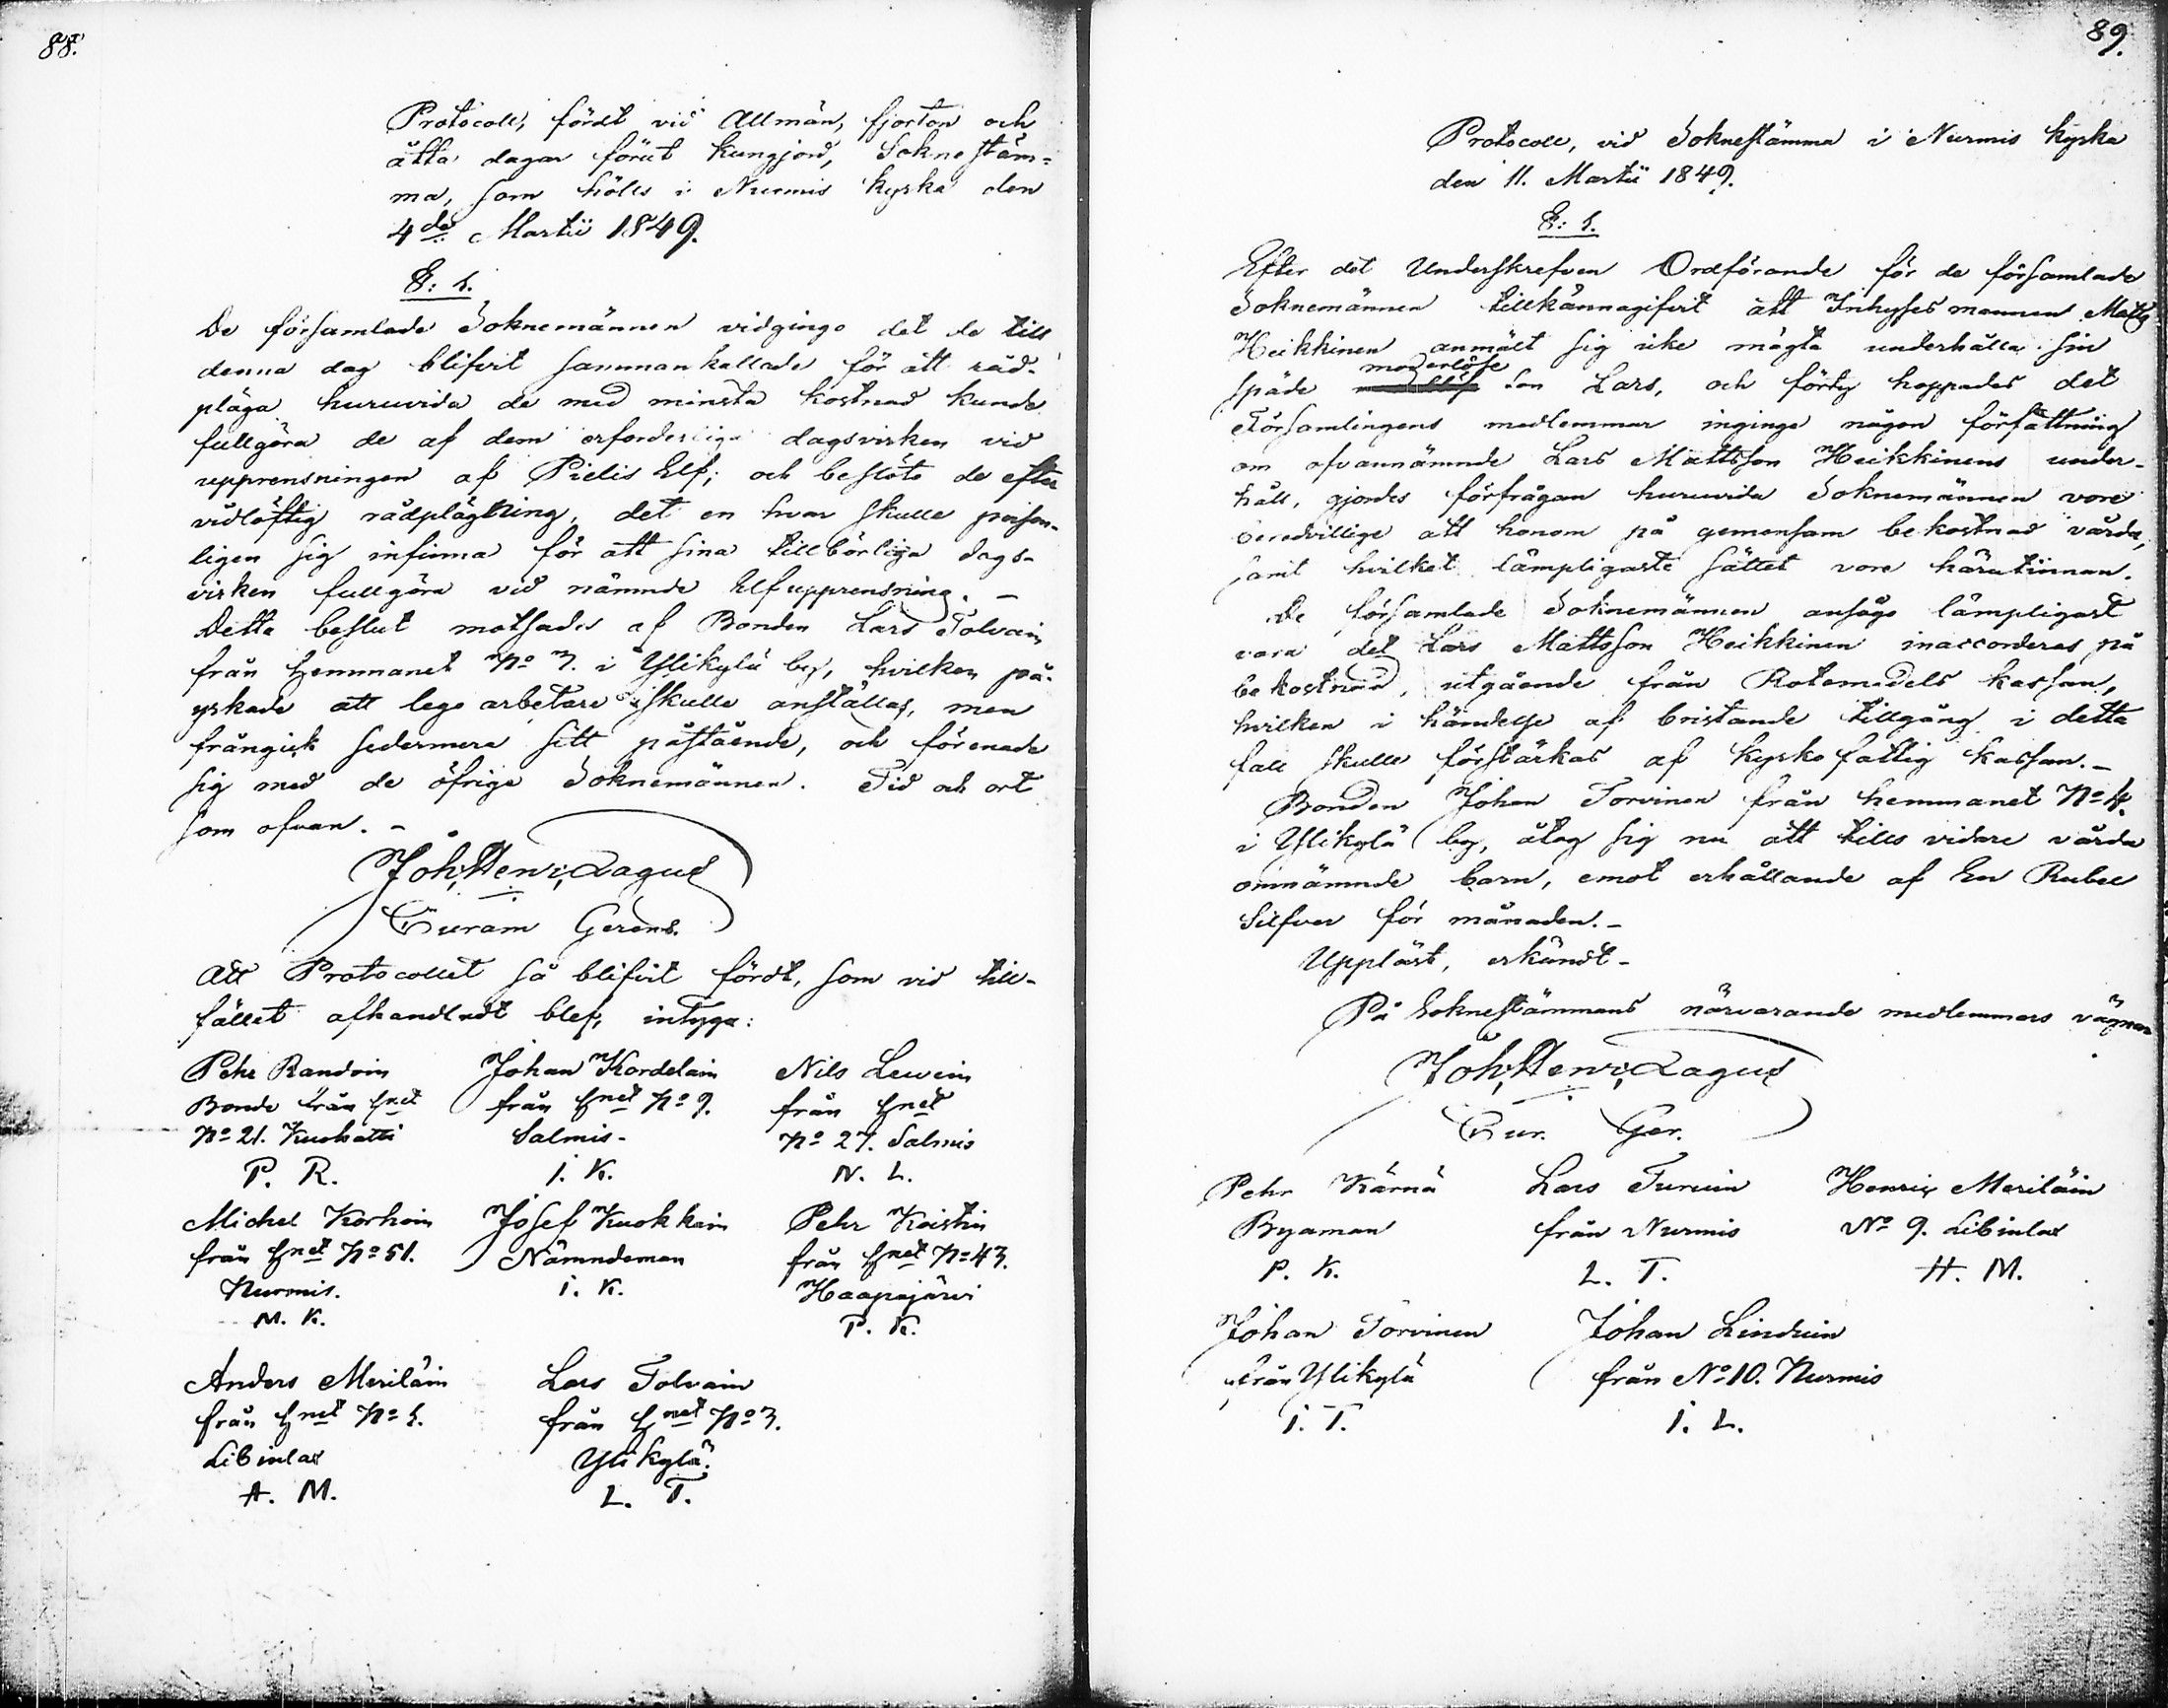 88.
Protocoll, fördt vid Allmän, fjorton och
åtta dagar förut kungjord, Sokne stäm-
ma, som hölls i Nurmis kyrka den
4de Martii 1849.
§: 1.
De församlade Soknemännen vidgingo det de till
denna dag blifvit sammankallade för att råd-
pläga huruvida de med minsta kostnad kunde
fullgöra de af dem erforderliga dagsvirken vid
upprensningen af Pielis Elf; och beslöto de efter
vidlöftig rådplägning, det en hvar skulle person-
ligen sig infinna för att sina tillbörliga dags-
virken fullgöra vid nämnde Elfupprensning. -
Detta beslut motsades af Bonden Lars Tolvain
från Hemmanet No 3. i Ylikylä by, hvilken på-
yrkade att lego arbetare skulle anställas, men
frångick sedermera sitt påstående, och förenade
sig med de öfriga Soknemännen. Tid och ort
som ofvan. -
Joh: Henr: Lagus
Curam Gerens.
Att Protocollet så blifvit fördt, som vid till-
fället afhandladt blef, intyga:
Pehr Randoin Johan Kordelain Nils Lewein
Bonde från Hnet från Hnet No 9. från Hnet
No 21. Kuohatti Salmis- No 27. Salmis
P. R. I. K. N. L.
Michel Korhoin Josef Kuokkain Pehr Koistin
från Hnet No 51. Nämndeman från Hnet No 43.
Nurmis. I. K. Haapajärvi
M. K. P. K.
Anders Meriläin Lars Tolvain
från Hnet No 1. från Hnet No 3.
Libinlax Ylikylä.
A. M. L. T.
89.
Protocoll, vid Soknestämma i Nurmis kyrka
den 11. Martii 1849.
§: 1.
Efter det Underskrefven Ordförande för de församlade
Soknemännen tillkännagifvit att Inhysesmannen Matts
Heikkinen anmält sig icke mägta underhålla sin
späde moderlöse son Lars, och förty hoppades det
Församlingens medlemmar inginge någon författning
om ofvannämnde Lars Mattsson Heikkinens under-
håll, gjordes förfrågan huruvida Soknemännen vore
beredvillige att honom på gemensam bekostnad vårda,
samt hvilket lämpligaste sättet vore härutinnan.
De församlade Soknemännen ansågo lämpligast
vara det Lars Mattsson Heikkinen inaccorderas på
bekostnad, utgående från Rotemedels kassan,
hvilken i händelse af bristande tillgång i detta
fall skulle förstärkas af kyrko fattig kassan. -
Bonden Johan Torvinen från hemmanet No 4.
i Ylikylä by, åtog sig nu att tills vidare vårda
omnämnde barn, emot erhållande af En Rubel
Silfver för månaden. -
Uppläst, erkändt -
På Soknestämmans närvarande medlemmars vägnar
Joh: Henr: Lagus
Cur. Ger.
Pehr Kärnä Lars Turuin Henric Meriläin
Byaman från Nurmis No 9. Libinlax
P. K. L. T. H. M.
Johan Torvinen Johan Linduin
från Ylikylä från No 10. Nurmis
I. T. I. L.